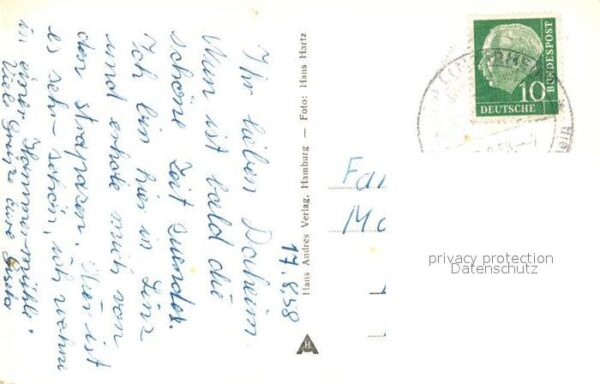 Ihr lieben Daheim.
Nun ist bald die
schöne Zeit zuende.
Ich bin hier in
und erhole mich von
den Strapazen. Hier ist
es sehr schön, ich wohne
in einer
Viele Grüße eure
17.8.58
Hans Andres Verlag, Hamburg — Foto: Hans Hartz
DEUTSCHE
BUNDESPOST
10
Fa
privacy protection
Datenschutz